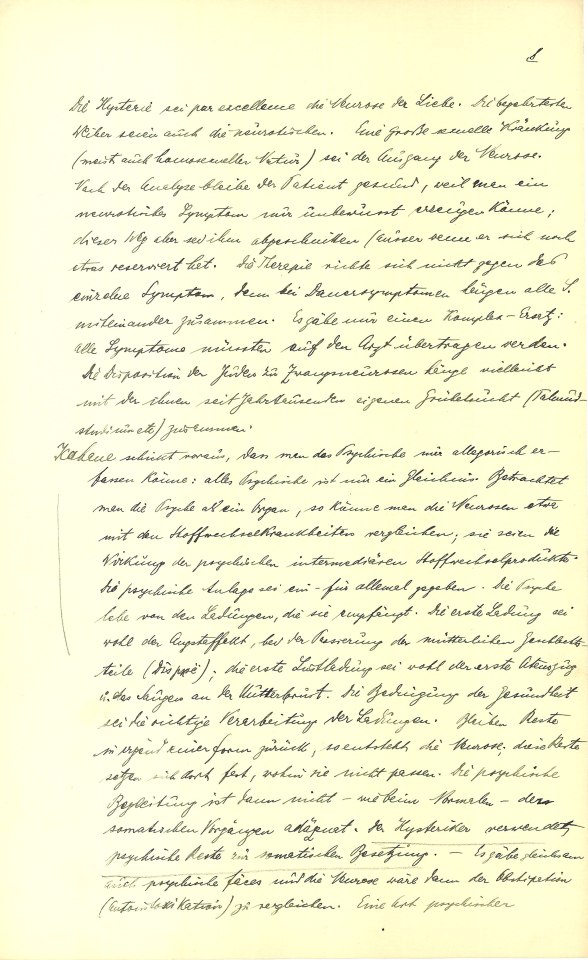 8
Die Hysterie sei par excellence die Neurose der Liebe. Die begehrtesten
Weiber seien auch die neurotischen. Eine große sexuelle Kränkung
(meist auch homosexueller Natur) sei der Ausgang der Neurose.
Nach der Analyse bleibe der Patient gesund, weil man ein
neurotisches Symptom nur unbewusst erzeugen könne;
dieser Weg aber sei ihm abgeschnitten (ausser wenn er sich noch
etwas reserviert hat. Die Therapie richte sich nicht gegen das
einzelne Symptom, denn bei Dauersymptomen hängen alle S.
miteinander zusammen. Es gäbe nur einen Komplex-Ersatz:
alle Symptome müssten auf den Arzt übertragen werden.
Die Disposition der Juden zu Zwangsneurosen hänge vielleicht
mit der ihnen seit Jahrtausenden eigenen Grübelsucht (Talmud-
studium etc) zusammen.
Kahane schickt voraus, dass man das Psychische nur allegorisch er-
fassen könne: alles Psychische ist nur ein Gleichnis. Betrachtet
man die Psyche als ein Organ, so könne man die Neurosen etwa
mit den Stoffwechselkrankheiten vergleichen; sie seien die
Wirkung der psychischen intermediären Stoffwechselprodukte.
Die psychische Anlage sei ein-für allemal gegeben. Die Psyche
lebe von den Ladungen, die sie empfängt. Die erste Ladung sei
wohl der Angstaffekt, bei der Passierung der mütterlichen Genital-
teile; die erste Lustladung sei wohl der erste Atemzug
u. das Saugen an der Mutterbrust. Die Bedingung der Gesundheit
sei die richtige Verarbeitung der Ladungen. Bleiben Reste
in irgend einer Form zurück, so entsteht die Neurose; diese Reste
setzen sich dort fest, wohin sie nicht passen. Die psychische
Begleitung ist dann nicht – wie beim Normalen – den
somatischen Vorgängen adäquat. Der Hysteriker verwendet
psychische Reste zur somatischen Besetzung. – Es gäbe gleichsam
auch psychische fäces und die Neurose wäre dann der Obstipation
(Autointoxikation) zu vergleichen. Eine Art psychischer